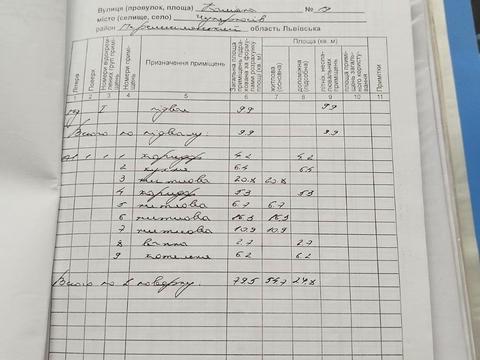 Вулиця (провулок, площа) № 19
місто (селище, село)
район область Львівська
Літера
Поверх
Номери відокремлених груп приміщень
Номери приміщень
Призначення приміщень
Загальна площа приміщень підрахована за формулами розрахунку площі (кв. м)
Площа (кв. м)
житлова (основна)
допоміжна (підсобна)
Примітки
1 2 3 4 5 6 7 8 9 10 11
пд I підвал 9.9 9.9
Всього по підвалу: 9.9 9.9
1 1 1 коридор 4.2 4.2
2 кухня 6.4 6.4
3 житлова 20.8 20.8
4 коридор 5.3 5.3
5 житлова 6.7 6.7
6 житлова 16.3 16.3
7 житлова 10.9 10.9
8 ванна 2.7 2.7
9 котельня 6.2 6.2
Всього по 1 поверху: 79.5 54.7 24.8